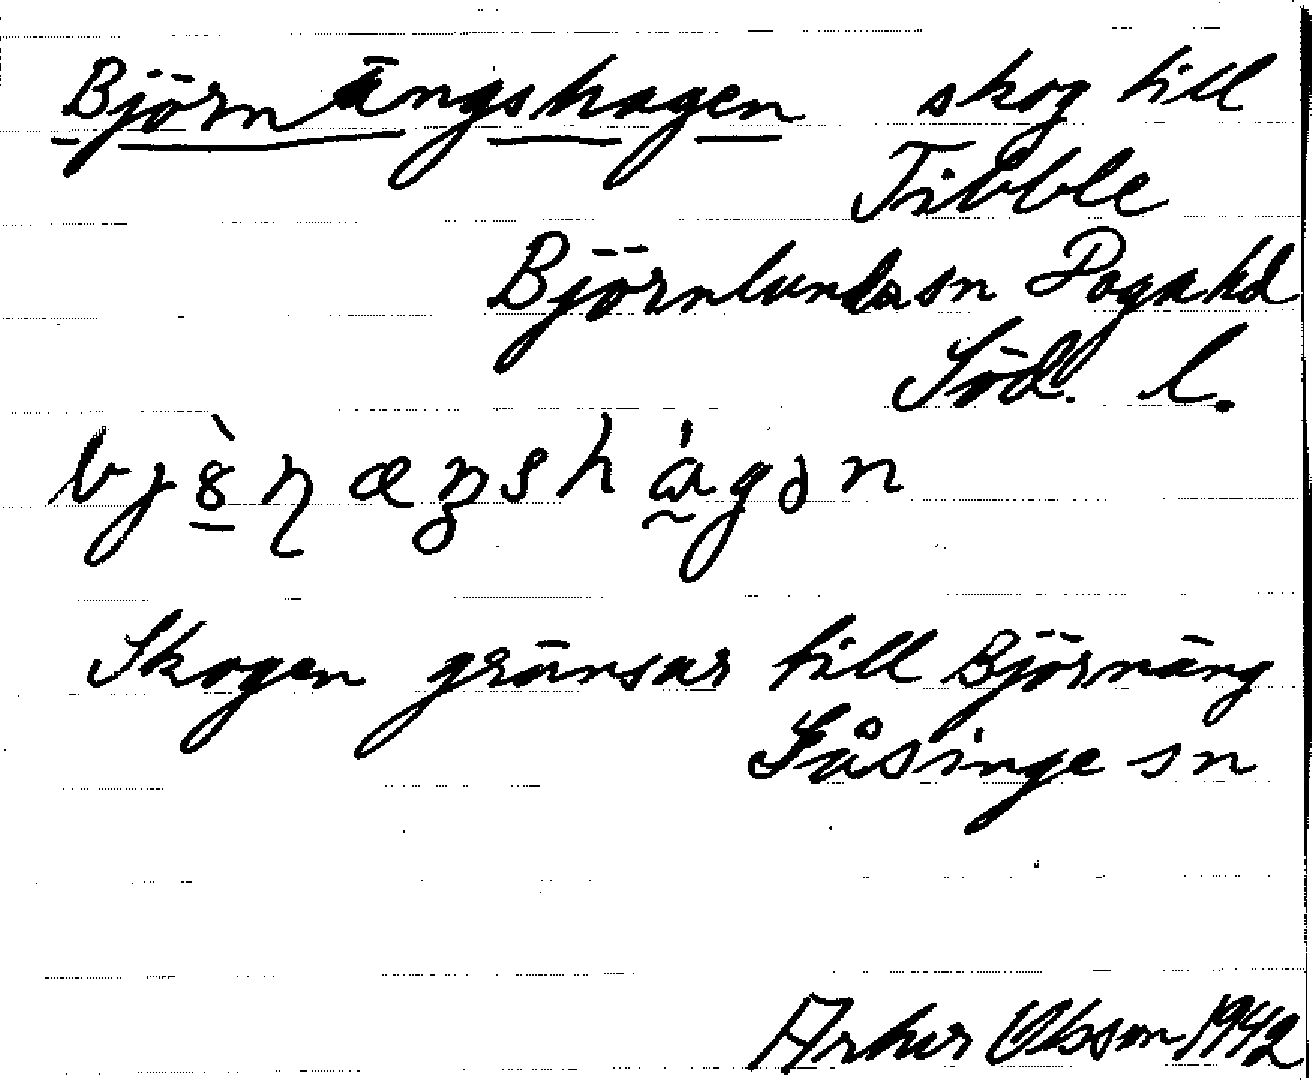 Björnängshagen skog till
Tibble
Björnlunda sn Daga hd
Söd. l.
bjȣ̀ɳæŋshágən
Skogen gränsar till Björnäng
Gåsinge sn
Arthur Olsson 1942